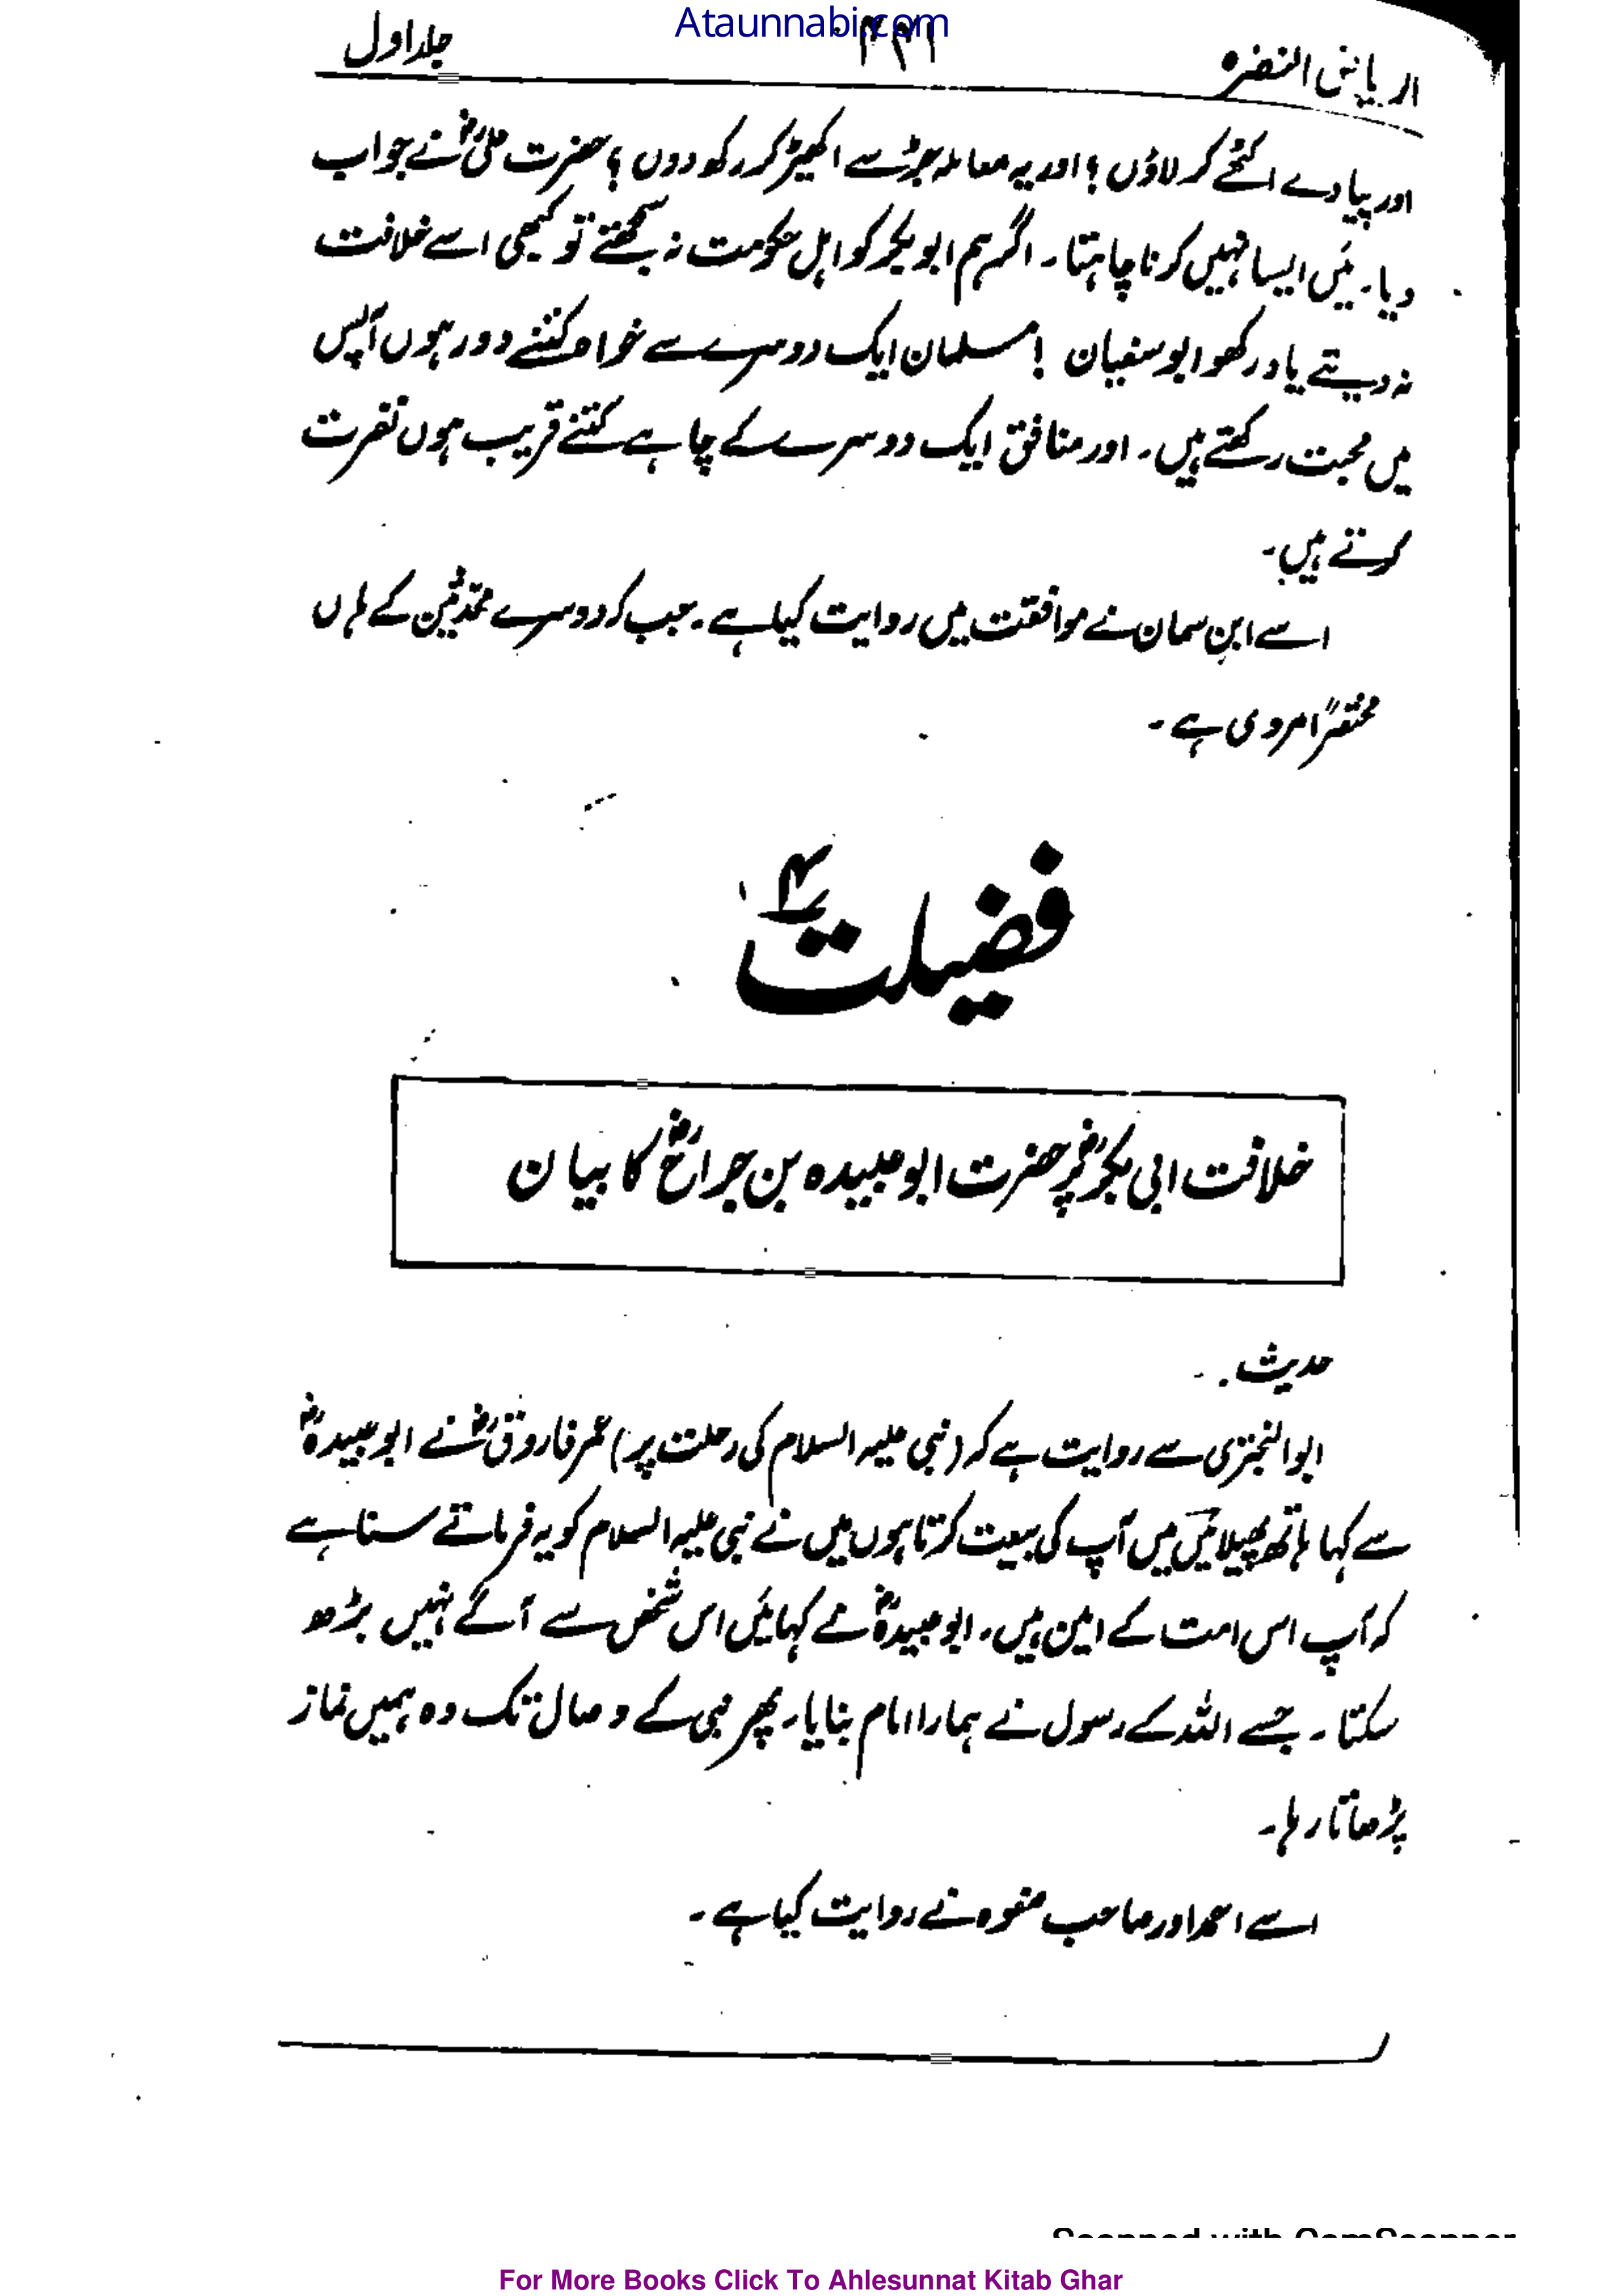 Ataunnabi.com
الریاض النضرہ ۴۴۱ جلد اول
اور پیادے اکٹھے کر لاؤں ؟ اور یہ معاملہ جڑ سے اکھیڑ کر رکھ دوں ؟ حضرت علیؓ نے جواب
دیا۔ میَں ایسا نہیں کرنا چاہتا۔ اگر ہم ابوبکر کو اہل حکومت نہ سمجھتے تو کبھی اسے خلافت
نہ دیتے یاد رکھو ابوسفیان ! مسلمان ایک دوسرے سے خواہ کتنے دور ہوں آپس
میں محبت رکھتے ہیں۔ اور منافق ایک دوسرے کے چاہے کتنے قریب ہوں نفرت
کرتے ہیں۔
اسے ابن سمان نے موافقت میں روایت کیا ہے۔ جب کہ دوسرے محدثین کے ہاں
مختصراً مروی ہے۔
فضیلت ۴
خلافت ابی بکرؓ پر حضرت ابو عبیدہ بن جراحؓ کا بیان
حدیث۔
ابو البختری سے روایت ہے کہ (نبی علیہ السلام کی رحلت پر) عمر فاروقؓ نے ابو عبیدہؓ
سے کہا ہاتھ پھیلائیں میں آپ کی بیعت کرتا ہوں میں نے نبی علیہ السلام کو یہ فرماتے سنا ہے
کہ آپ اس امت کے امین ہیں۔ ابو عبیدہؓ نے کہا میَں اس شخص سے آگے نہیں بڑھ
سکتا۔ جسے اللہ کے رسول نے ہمارا امام بنایا۔ پھر نبی کے وصال تک وہ ہمیں نماز
پڑھاتا رہا۔
اسے احمد اور صاحب صفوہ نے روایت کیا ہے۔
Scanned with CamScanner
For More Books Click To Ahlesunnat Kitab Ghar